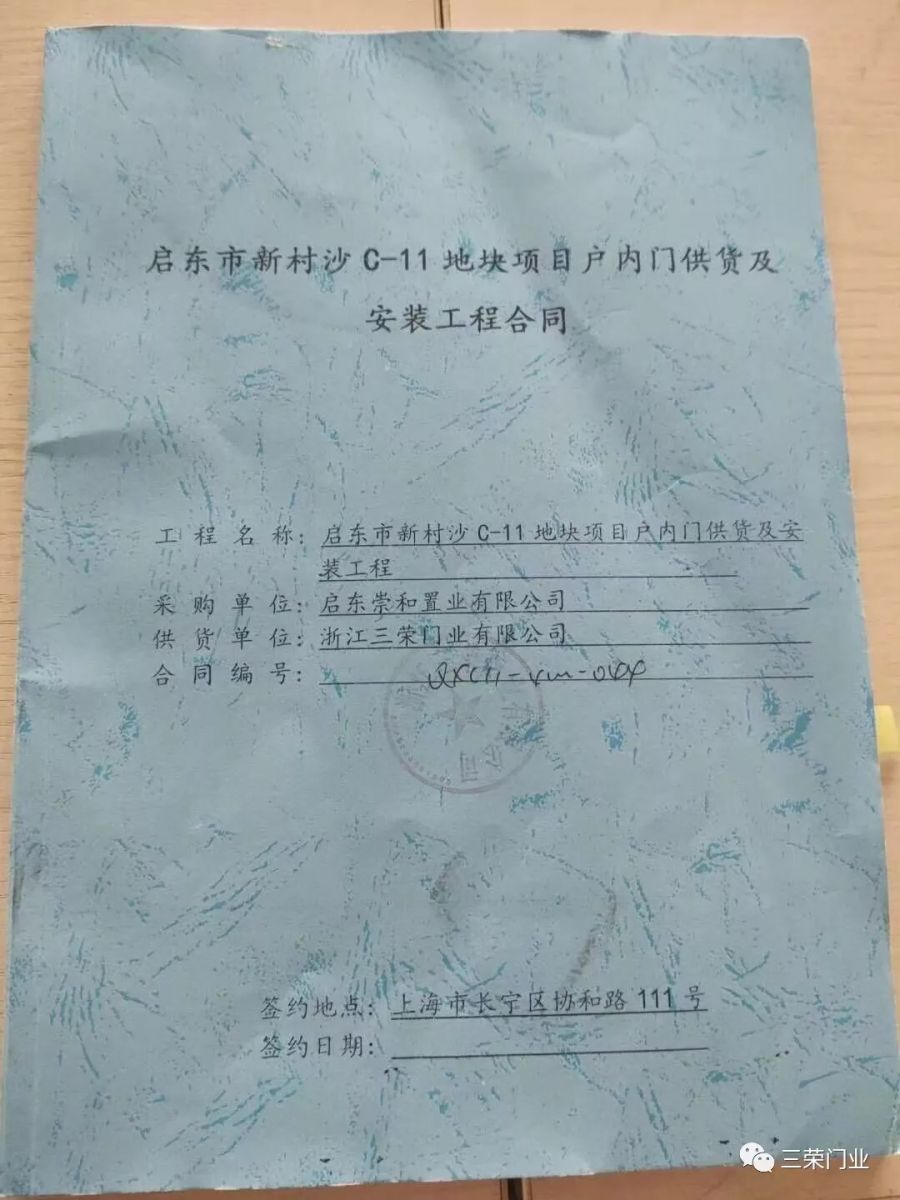 启东市新村沙 C-11 地块项目户内门供货及
安装工程合同
工程名称：启东市新村沙 C-11 地块项目户内门供货及安
装工程
采购单位：启东崇和置业有限公司
供货单位：浙江三荣门业有限公司
合同编号：
签约地点：上海市长宁区协和路 111 号
签约日期：
三荣门业